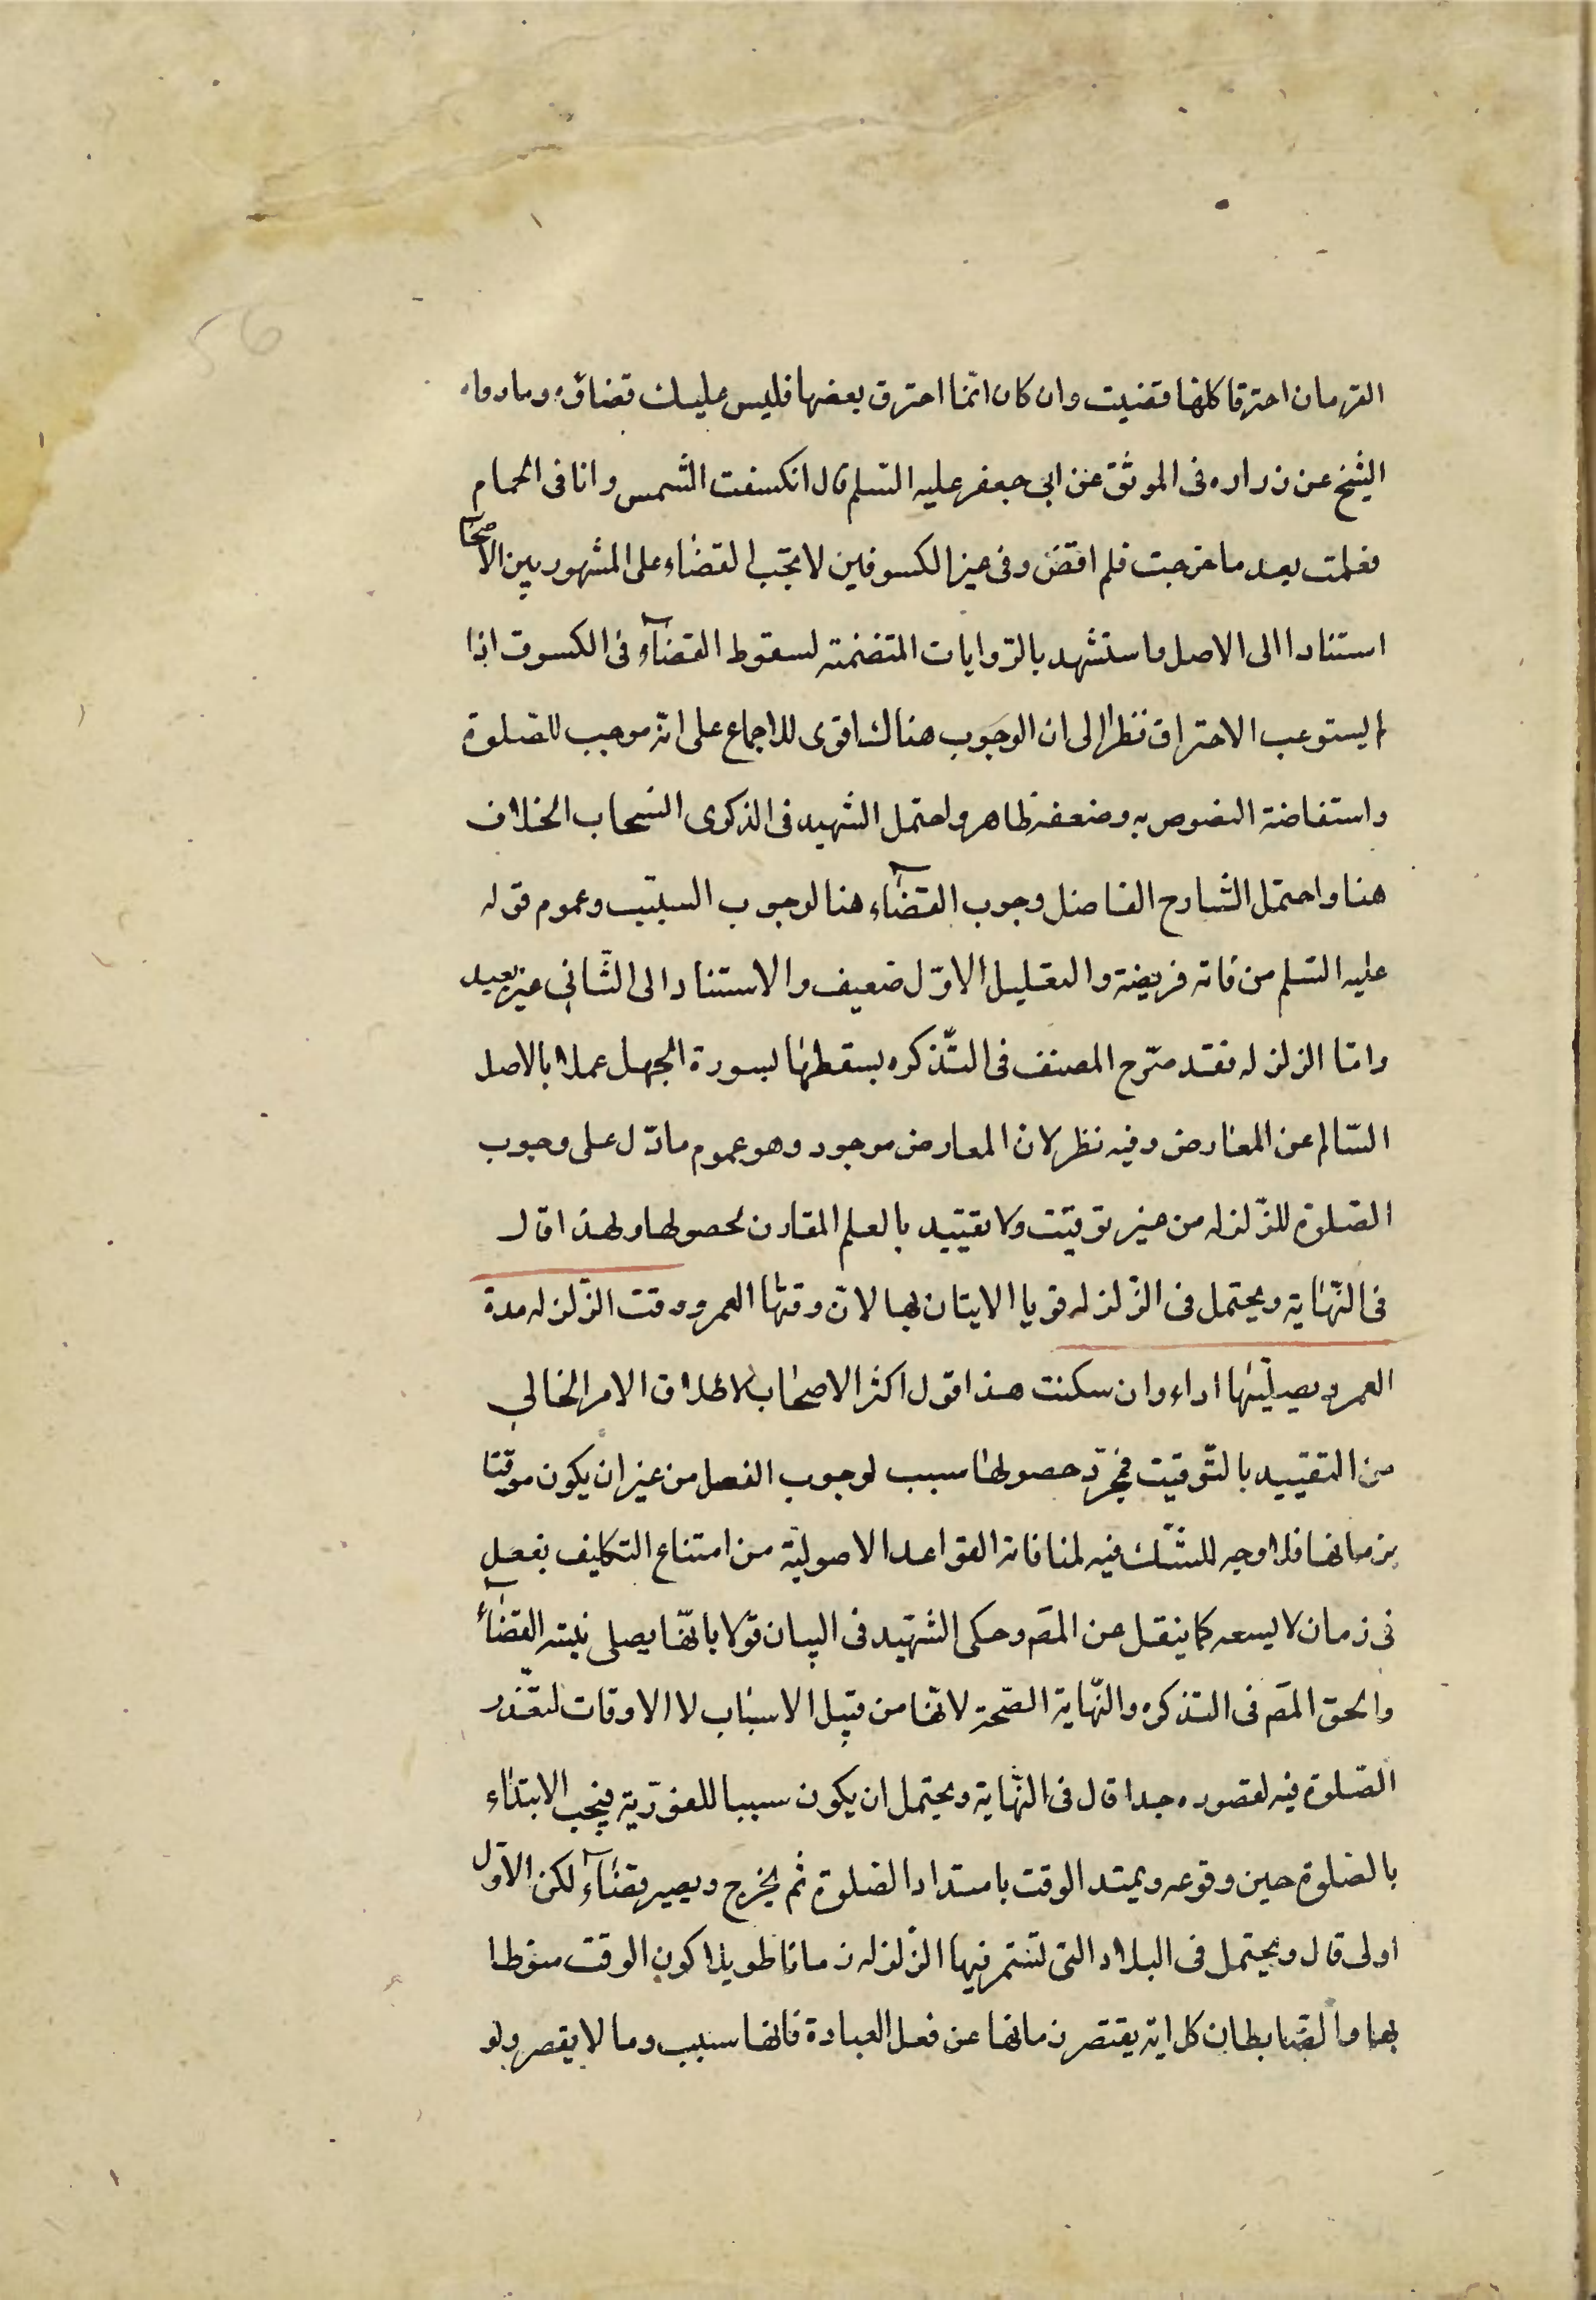 القرصان احترقا كلها قضيت وان كان انما احترق بعضها فليس عليك قضاؤه وما رواه
الشيخ عن زراره فى الموثق عن ابى جعفر عليه السلم قال انكسفت الشمس وانا فى الحمام
فعلمت بعد ما خرجت فلم اقض وفى غير الكسوفين لا يجب القضاء على المشهور بين الاصحا
استنادا الى الاصل واستشهد بالروايات المتضمنه لسقوط القضاء فى الكسوف اذا
لم يستوعب الاحتراق نظرا الى ان الوجوب هناك اقوى للاجماع على انه موجب للصلوة
واستفاضة النصوص به وضعفه ظاهر واحتمل الشهيد فى الذكرى انسحاب الخلاف
هنا واحتمل الشارح الفاضل وجوب القضاء هنا لوجوب السبب وعموم قوله
عليه السلم من فاته فريضة والتعليل الاول ضعيف والاستناد الى الثانى غير بعيد
واما الزلزله فقد صرح المصنف فى التذكره بسقطها لسورة الجهل عملا بالاصل
السالم عن المعارض وفيه نظر لان المعارض موجود وهو عموم ما دل على وجوب
الصلوة للزلزله من غير توقيت ولا تقييد بالعلم المقارن لحصولها ولهذا قال
فى النهاية ويحتمل فى الزلزله قويا الايتان بها لان وقتها العمر ووقت الزلزله مدة
العمر ويصليها اداء وان سكنت هذا قول اكثر الاصحاب لاطلاق الامر الخالي
من التقييد بالتوقيت فمجرد حصولها سبب لوجوب الفعل من غير ان يكون موقتا
بزمانها فلا وجه للشك فيه لمنافاته القواعد الاصولية من امتناع التكليف بفعل
فى زمان لا يسعه كما ينقل عن المصَ وحكى الشهيد فى البيان قولا بانها يصلى بنيته القضاء
والحق المصَ فى التذكره والنهاية الصحة لانها من قبيل الاسباب لا الاوقات لتعذر
الصلوة فيه لقصوره جدا قال فى النهاية ويحتمل ان يكون سببا للفورية فيجب الابتداء
بالصلوة حين وقوعه ويمتد الوقت بامتداد الصلوة ثم يخرج ويصير قضاء لكن الاول
اولى قال ويحتمل فى البلاد التى تستمر فيها الزلزله زمانا طويلا كون الوقت منوطا
بها والضابط ان كل اية يقتصر زمانها عن فعل العبادة فانها سبب وما لا يقصر ولو